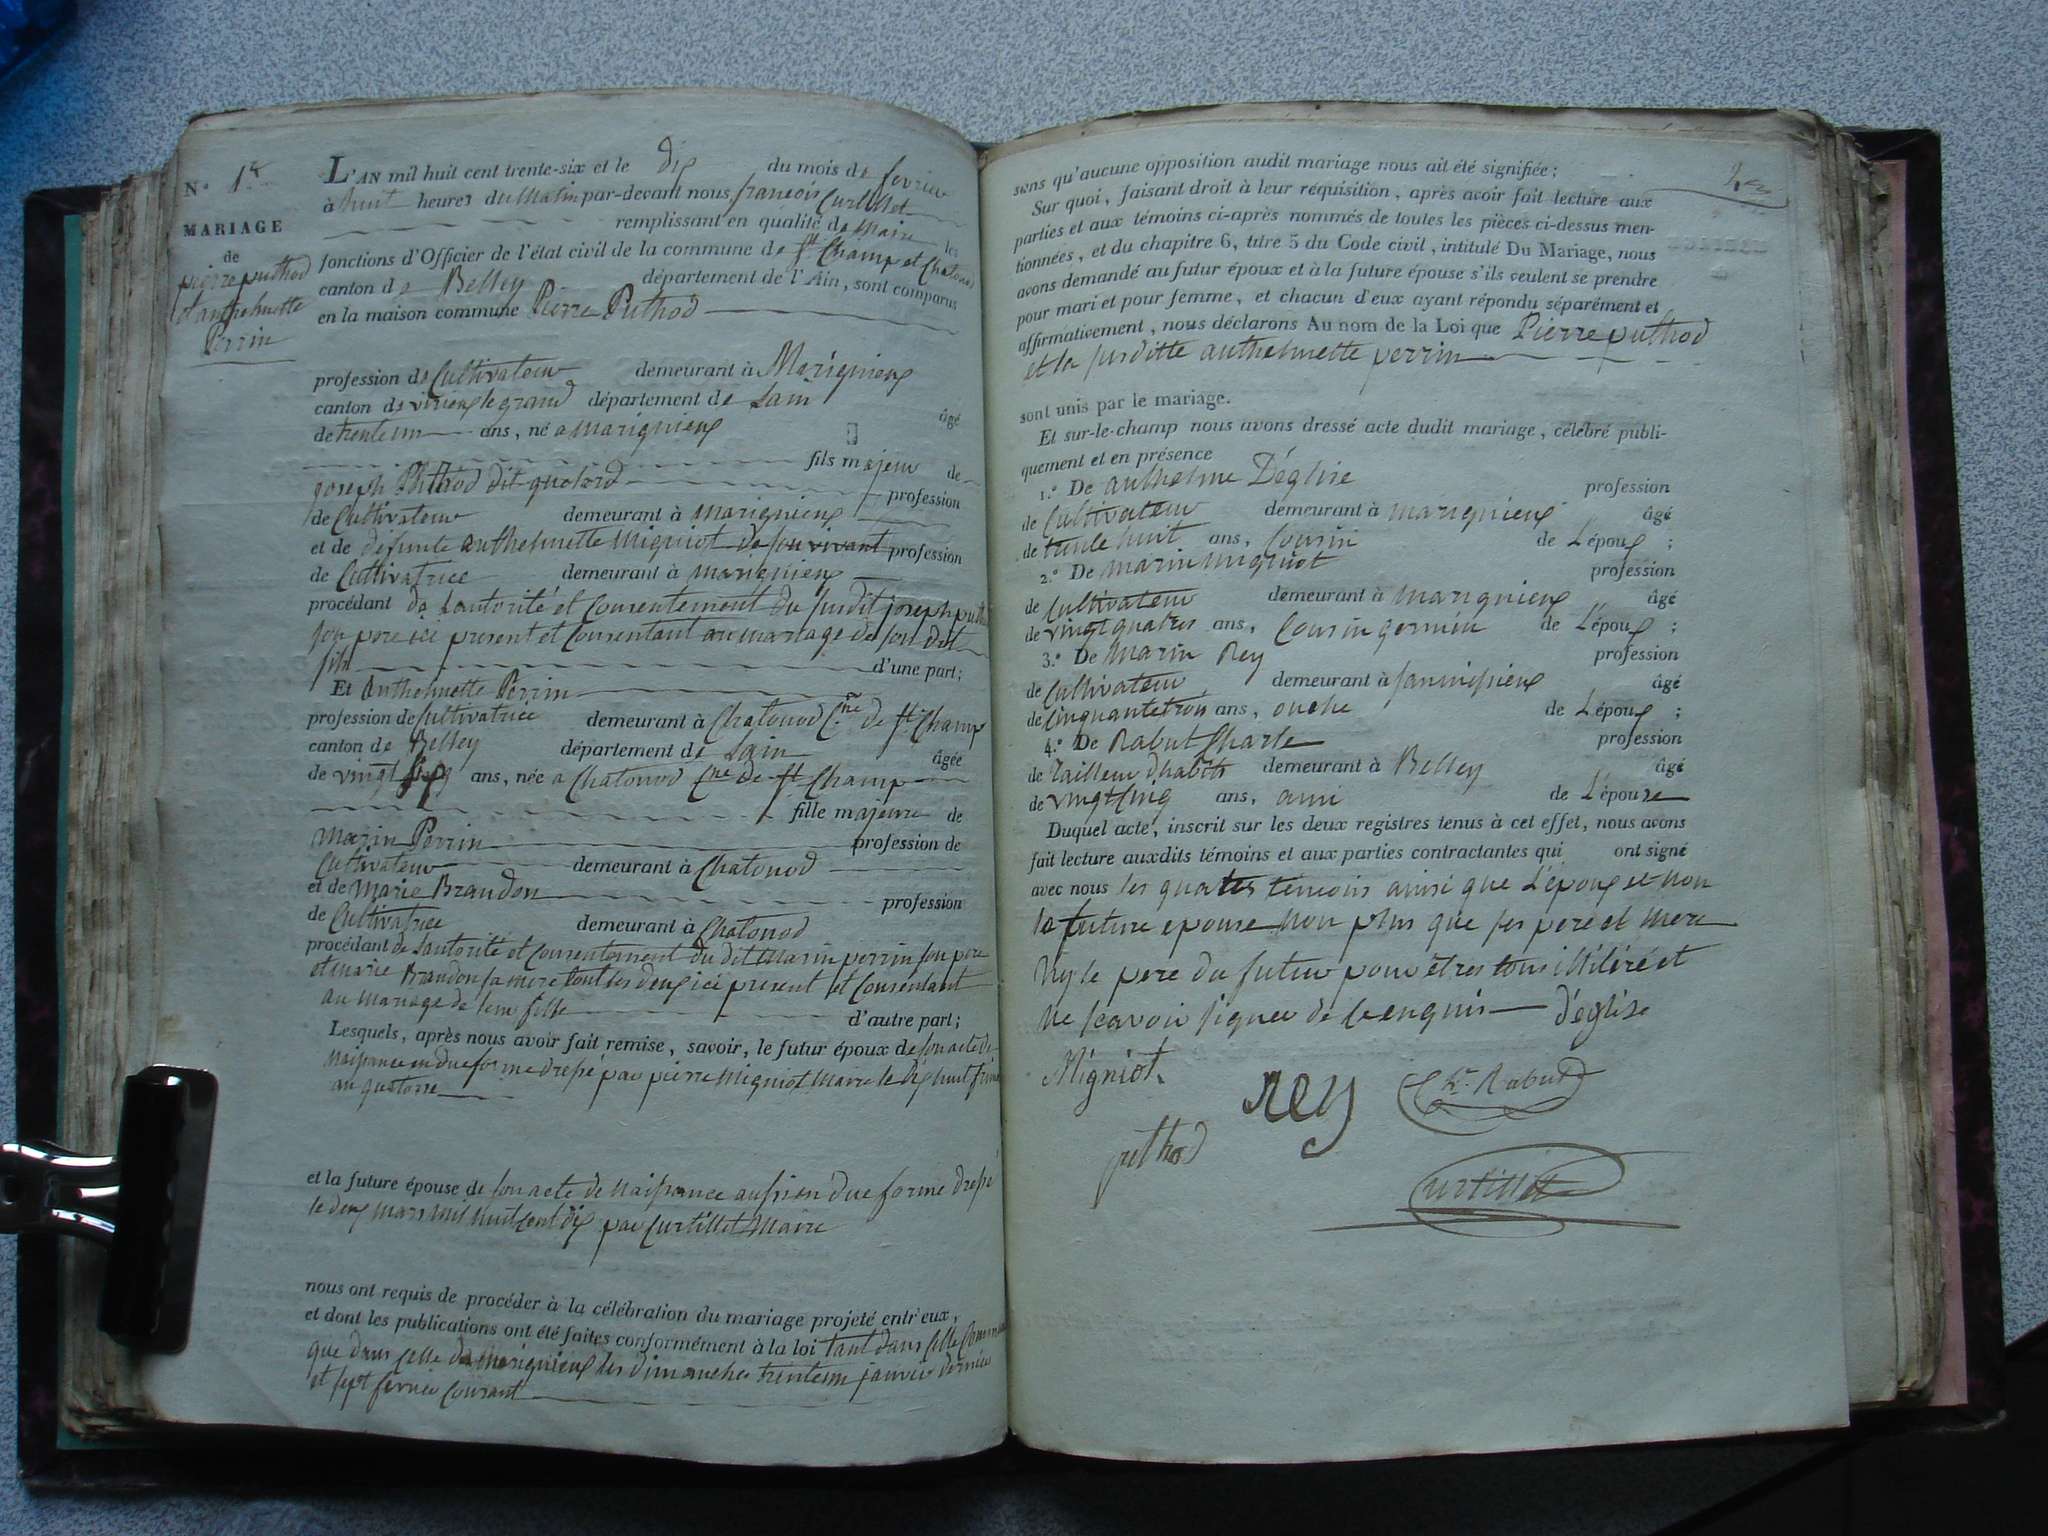 N.° 1er
MARIAGE
de
pierre puthod
et anthelmette
Perrin
L'AN mil huit cent trente-six et le dix du mois de fevrier
à huit heures du Matin par-devant nous françois Curtillet
remplissant en qualité de Maire les
fonctions d'Officier de l'état civil de la commune de st Champ et Chatonod
canton de Belley département de l'Ain, sont comparus
en la maison commune Pierre Puthod
profession de Cultivateur demeurant à Marignieux
canton de virieux le grand département de Lain
âgé
de trente un ans, né a marignieux
fils majeur de
joseph Puthod dit
profession
de Cultivateur demeurant à marignieux
et de defunte anthelmette Migniot de son vivant profession
de Cultivatrice demeurant à marignieux
procédant de Lautorité et Consentement du susdit joseph puthod
son pere ici present et Consentant au mariage de son dit
fils d'une part;
Et anthelmette Perrin
profession de Cultivatrice demeurant à Chatonod Cne de st Champ
canton de Belley département de Lain
âgée
de vingt six ans, née a Chatonod Cne de st Champ
fille majeure de
Marin Perrin profession de
Cultivateur demeurant à Chatonod
et de Marie Brandon
profession
de Cultivatrice demeurant à Chatonod
procédant de Lautorité et Consentement du dit Marin perrin son pere
et marie Brandon sa mere tout les deux ici present et Consentant
au mariage de leur fille
d'autre part;
Lesquels, après nous avoir fait remise, savoir, le futur époux de son acte de
naissance en due forme dressé par pierre Migniot Maire le dix huit
an quatorse
et la future épouse de son acte de naissance aussi en due forme dressé
le deux mars mil huit cent dix par Curtillet Maire
nous ont requis de procéder à la célébration du mariage projeté entr'eux,
et dont les publications ont été faites conformément à la loi tant dans cette Commune
que dans celle de Marignieux les dimanches trente un janvier dernier
et sept fevrier Courant
sans qu'aucune opposition audit mariage nous ait été signifiée;
Sur quoi, faisant droit à leur réquisition, après avoir fait lecture aux
parties et aux témoins ci-après nommés de toutes les pièces ci-dessus men-
tionnées, et du chapitre 6, titre 5 du Code civil, intitulé Du Mariage, nous
avons demandé au futur époux et à la future épouse s'ils veulent se prendre
pour mari et pour femme, et chacun d'eux ayant répondu séparément et
affirmativement, nous déclarons Au nom de la Loi que Pierre puthod
et la susditte anthelmette perrin
sont unis par le mariage.
Et sur-le-champ nous avons dressé acte dudit mariage, célébré publi-
quement et en présence
1.° De anthelme Déglise profession
de Cultivateur demeurant à marignieux âgé
de trente huit ans, Cousin de L'époux;
2.° De marin migniot profession
de Cultivateur demeurant à marignieux âgé
de vingt quatres ans, Cousin germin de L'époux;
3.° De Marin Rey profession
de Cultivateur demeurant à âgé
de Cinquante trois ans, oncle de L'époux;
4.° De Rabut Charle profession
de Tailleur dhabits demeurant à Belley âgé
de vingt Cinq ans, ami de L'épouse
Duquel acte, inscrit sur les deux registres tenus à cet effet, nous avons
fait lecture auxdits témoins et aux parties contractantes qui ont signé
avec nous les quatres temoins ainsi que L'epoux et non
la future epouse non plus que ses pere et mere
ny le pere du futur pour êtres tous illitéré et
ne scavoir signer de ce enquis déglise
Migniot
Rey
Ch. Rabut
puthod
Curtillet